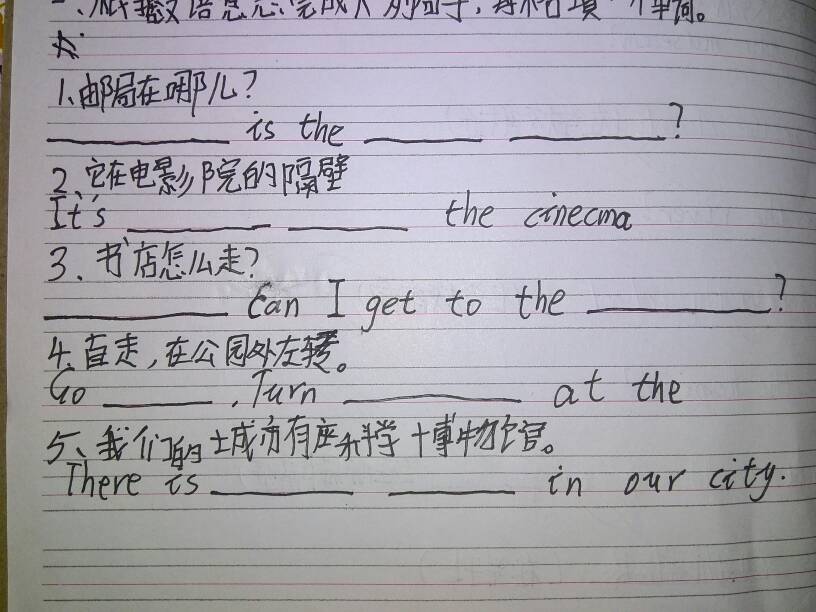 完成下列句子,每格填一个单词。
1、邮局在哪儿?
is the ?
2、它在电影院的隔壁
It's the cinecma
3、书店怎么走?
Can I get to the ?
4、直走,在公园处左转。
Go , Turn at the
5、我们的城市有座科学博物馆。
There is in our city.